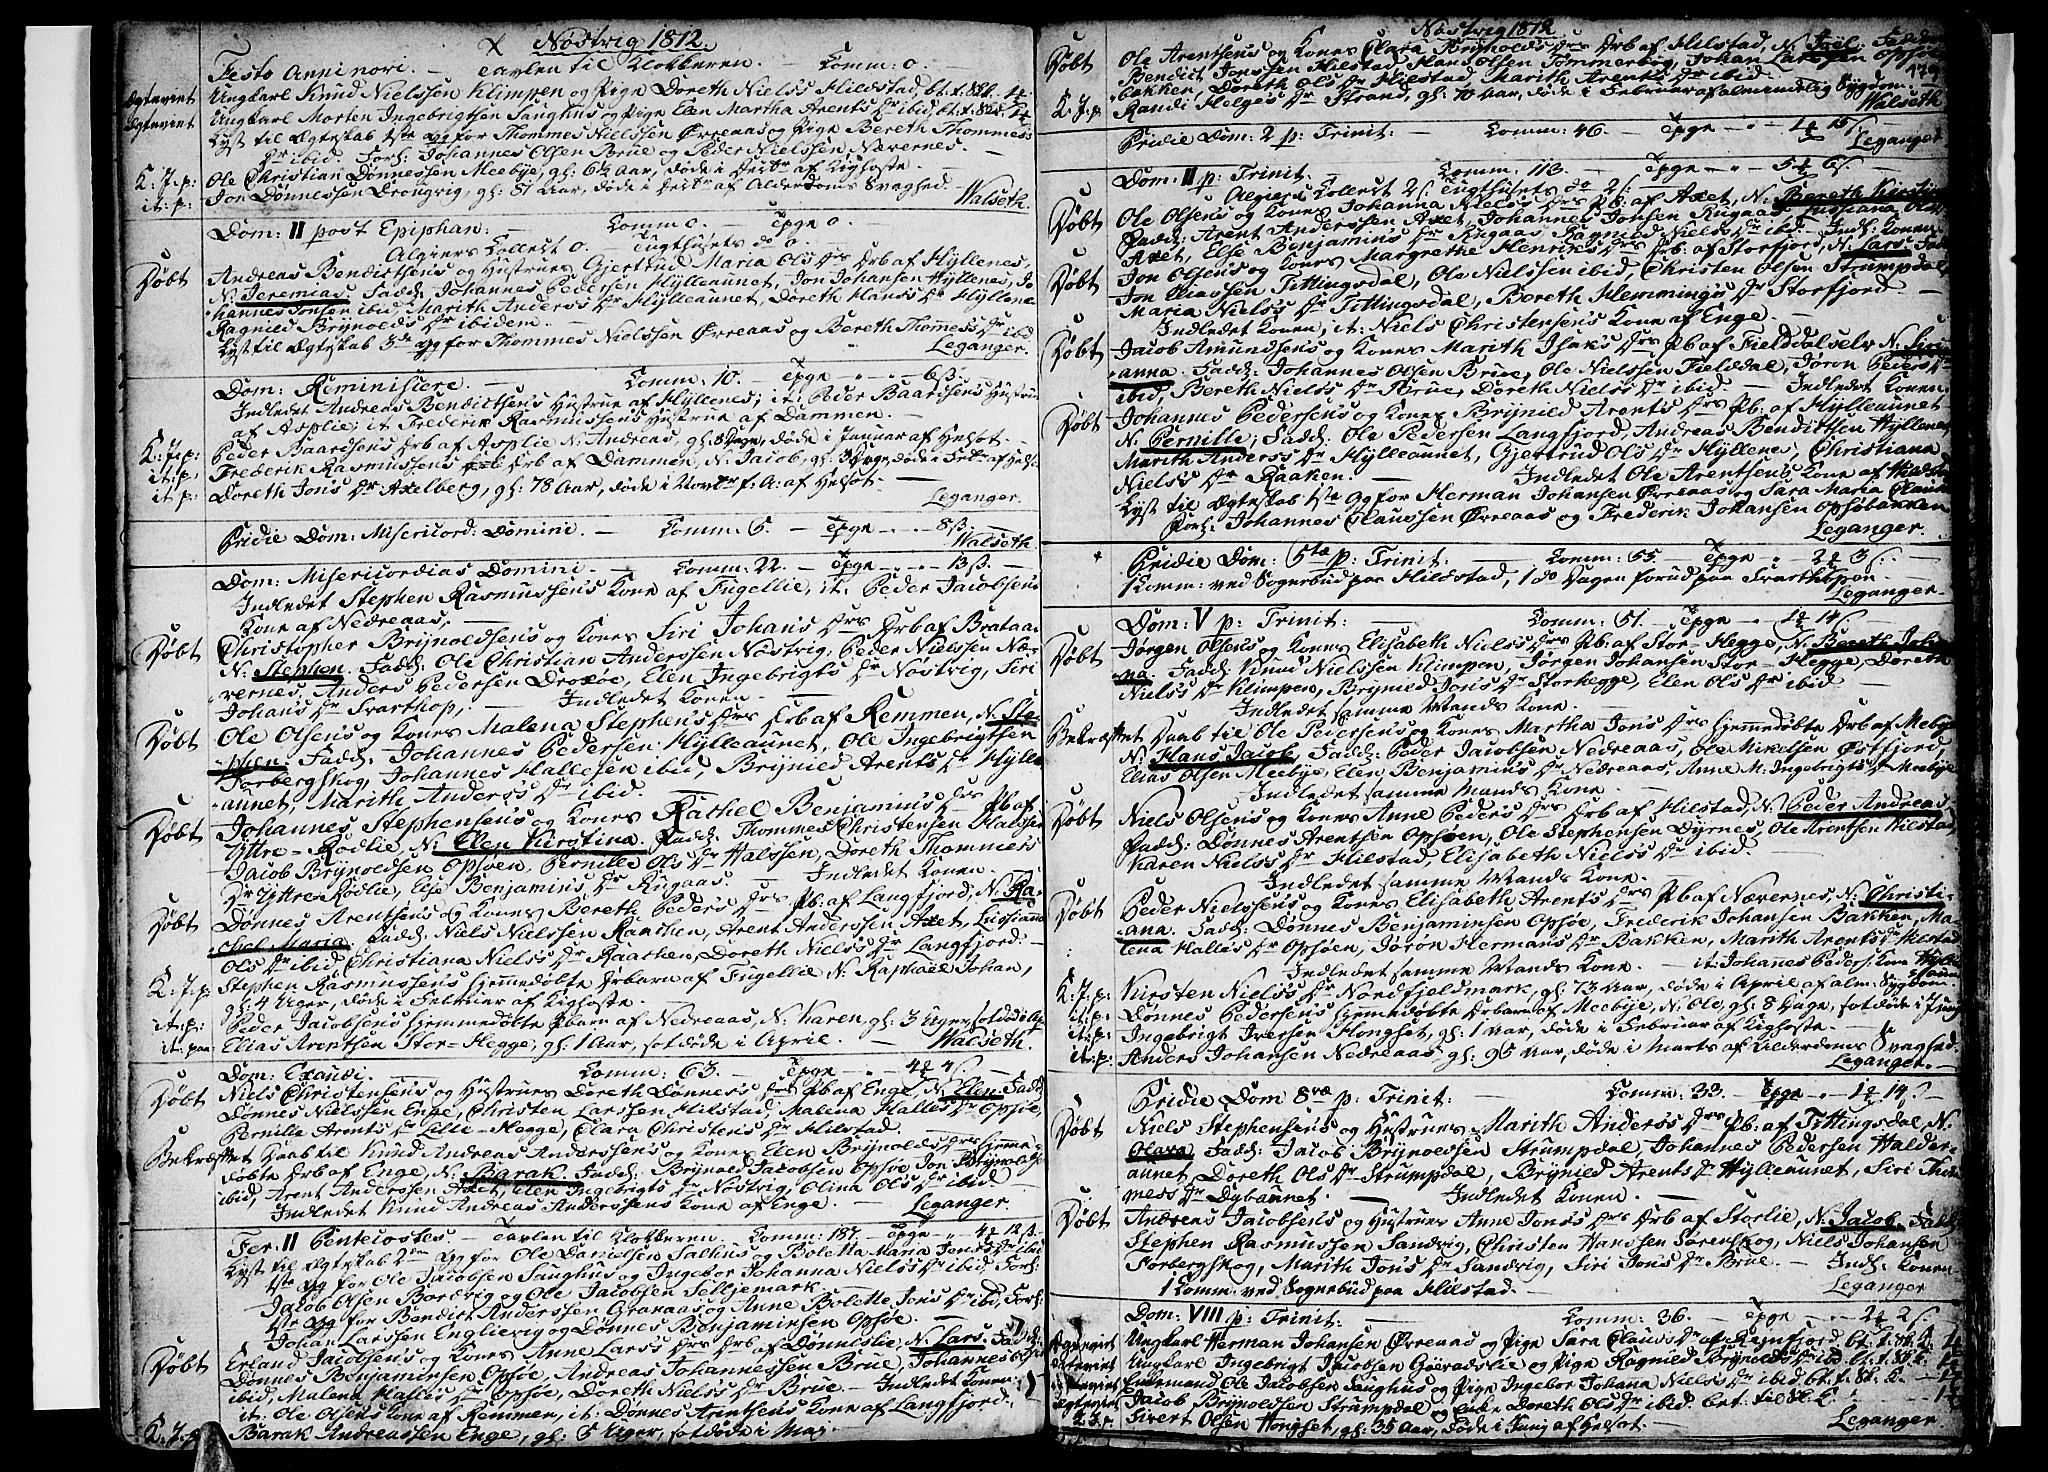 Nöstvig 1812.
Festo Anni novi. — Tavlen til Klokkeren. — Comm: 0.
Ægteviet Ungkarl Knud Nielssen Klimpen og Pige Doreth Nielsdr Hildstad, bt. f.
Ægteviet Ungkarl Morten Ingebrigtsen Sanghus og Pige Elen Martha Arentsdr ibid, bt. f.
Lyst til Ægteskab 1ste gg for Thommes Nielssen Örreaas og Pige Bereth Thommes
dr ibid. Forl: Johannes Olsen Brue og Peder Nielssen Nævernes. —
K: J. p: Ole Christian Dönnessen Meebye, gl: 6½ Aar, döde i Decbr af Kighoste.
it: p: Jon Dönnessen Drongvig, gl: 81 Aar, döde i Decbr af Alderdoms Svaghed. — Walseth.
Dom: II post Epiphan: — Comm: 0. — Tpge 0.
Algiers Collect 0. Tugthusets do 0.
Döbt Andreas Bendictsens og Hustrues Gjertrud Maria Olsdrs Ærb af Hyllenes,
N: Jeremias. Fadd: Johannes Pedersen Hylleaunet, Jon Johansen Hyllenes, Jo-
hannes Jonsen ibid, Marith Andersdr Hylleaunet, Doreth Hansdr Hyllene
Ragnild Brynoldsdr ibidem. —
Lyst til Ægteskab 3die gg for Thommes Nielssen Örreaas og Bereth Thommesdr ibid
Leganger.
Dom: Reminiscere. — Comm: 10. — Tpge — 6ß. —
Indledet Andreas Bendictsens Hustrue af Hyllenes; it: Peder Baardsens Hustrue
af Asplie; it: Frederik Rasmussens Hustrue af Dammen. —
K: J. p: Peder Baardsens Ærb af Asplie N: Andreas, gl: 8 Dage, döde i Januar af Helsot. —
it: p: Frederik Rasmussens Ærb af Dammen, N: Jacob, gl: 3 Dage, döde i Febr: af Helsot
it: p: Doreth Jonsdr Axelberg, gl: 78 Aar, döde i Novbr f: A: af Helsot. —
Leganger.
Pridie Dom: Misericord: Domini. — Comm: 6. — Tpge — 8ß. —
Walseth
Dom: Misericordias Domini. — Comm: 22. — Tpge — 13ß. —
Indledet Stephen Rasmussens Kone af Fugellie, it: Peder Jacobsens
Kone af Nedreaas. —
Döbt Christopher Brynoldsens og Kones Siri Johansdrs Ærb af Brataa
N: Stephen. Fadd: Ole Christian Anderssen Nöstvig, Peder Nielssen Næ-
vernes, Anders Pedersen Droxöe, Elen Ingebrigtsdr Nöstvig, Siri
Johansdr Svarthop, — Indledet Konen. —
Döbt Ole Olsens og Kones Malena Stephensdrs Ærb af Remmen, N: Ste-
phen. Fadd: Johannes Pedersen Hylleaunet, Ole Ingebrigtsen
Forbergskog, Johannes Hallesen ibid, Brynild Arentsdr Hylle
aunet, Marith Andersdr ibid. —
Döbt Johannes Stephensens og Kones Rachel Benjaminsdrs Pb af
Yttre-Rödlie, N: Elen Kirstina. Fadd: Thommes Christensen Halssen
Jacob Brynoldsen Opsöen, Pernille Olsdr Halssen, Doreth Thommes
dr Yttre-Rödlie, Else Benjaminsdr Rugaas. — Indledet Konen. —
Döbt Dönnes Arentsens og Kones Bereth Pedersdrs Pb: af Langfjord, N: Ra-
chel Maria. Fadd: Niels Nielssen Raachen, Arent Anderssen Axet, Lussiana
Olsdr ibid, Christiana Nielsdr Raachen, Doreth Nielsdr Langfjord. —
K: J. p: Stephen Rasmussens hjemmedöbte Ærbarn af Fugellie N: Raphaël Johan,
gl: 4 Uger, döde i Februar af Kighoste. —
it: p: Peder Jacobsens hjemmedöbte Pbarn af Nedreaas, N: Karen, gl: 3 Uger, sotdöde
it: paa Elias Arentsen Stor-Hegge, gl: 1 Aar, sotdöde i April. — Walseth.
Dom: Exaudi. — Comm: 63. — Tpge
Döbt Niels Christensens og Hustrues Doreth Dönnesdrs Pb af Enge, N: Elen Fadd
Dönnes Nielssen Enge, Christen Larssen Hilstad, Malena Hallesdr Opsöe,
Pernille Arentsdr Lille-Hegge, Clara Christensdr Hilstad. —
Bekræftet Daab til Knud Andreas Anderssens og Kones Elen Brynoldsdrs hjemme-
döbte Ærb af Enge, N: Barak. Fadd: Brynold Jacobsen Opsöe, Jon Brynoldsen
ibid, Arent Anderssen Axet, Elen Ingebrigtsdr Nöstvig, Olina Olsdr ibid. —
Indledet Knud Andreas Anderssens Kone af Enge. — Leganger.
Fer: II Pentecostes. — Tavlen til Klokkeren. Comm: 187. — Tpge
Lyst til Ægteskab 2den gg for Ole Danielsen Salhus og Boletta Maria Jonsdr ibid
1ste gg for Ole Jacobsen Sanghus og Ingebor Johanna Nielsdr ibid Forl:
Jacob Olsen Bordvig og Ole Jacobsen Selljemark. —
1ste gg for Bendict Anderssen Granaas og Anne Bolette Jonsdr ibid, Forl:
Johan Larssen Englievig og Dönnes Benjaminsen Opsöe. —
Döbt Erland Jacobsens og Kones Anne Larsdrs Ærb af Dönneslie, N: Lars. Fadd:
Dönnes Benjaminsen Opsöe, Andreas Johannessen Brue, Johannes
ibid, Malena Hallesdr Opsöe, Doreth Nielsdr Brue. — Indledet Konen:
it: Ole Olsens Kone af Remmen, it: Dönnes Arentsens Kone af Langfjord.
K: J. p: Barak Andreassen Enge, gl: 5 Uger, sotdöde i May.
Nöstvig 1812
179
Döbt Ole Arentsens og Kones Clara Brynoldsdrs Ærb af Hilstad, N: Joël. Fadd:
Bendict Jonssen Hilstad, Hans Olsen Tommervig, Johan Larssen Opsöe
bakken, Doreth Olsdr Hilstad, Marith Arentsdr ibid. —
K: J. p: Randi Helgesdr Strand, gl: 70 Aar, döde i Februar af almindelig Sygdom.
Walseth
Pridie Dom: 2 p: Trinit: Comm: 46. — Tpge
Leganger
Dom: II p: Trinit. Comm: 113. — Tpge
Algiers Collect 2ß. Tugthusets do 2ß. —
Döbt Ole Olsens og Kones Johanna Nielsdrs Pb: af Axet, N: Bereth Kirstina
Fadd: Arent Anderssen Axet, Johannes Johsen Rugaas, Lussiana Olsdr
Axet, Else Benjaminsdr Rugaas, Ragnild Nielsdr ibid. — Indl: Konen.
Döbt Jon Olsens og Kones Margrethe Henriksdrs Pb: af Storfjord, N: Lars. Fadd
Jon Eliassen Tittingsdal, Ole Nielssen ibid, Christen Olsen Strumpdal
Maria Nielsdr Tittingsdal, Bereth Flemmingsdr Storfjord. —
Indledet Konen; it: Niels Christensens Kone af Enge. —
Döbt Jacob Amundsens og Kones Marith Isaksdrs Pb af Fielddalselv N: Siri-
anna. Fadd: Johannes Olsen Brue, Ole Nielssen Fieldal, Jören Pedersdr
ibid, Bereth Nielsdr Brue, Doreth Nielsdr ibid. — Indledet Konen.
Döbt Johannes Pedersens og Kones Brynild Arentsdrs Pb: af Hylleaunet
N: Pernille; Fadd: Ole Pedersen Langfjord, Andreas Bendictsen Hyllenes
Marith Andersdr Hylleaunet, Gjertrud Olsdr Hyllene, Christiana
Nielsdr Raaken. — Indledet Ole Arentsens Kone af Hildstad
Lyst til Ægteskab 1ste gg for Herman Johansen Örreaas og Sara Maria Clausdr
Forl: Johannes Claussen Örreaas og Frederik Johansen Opsöbakken
Leganger.
Pridie Dom: 5tæ p: Trinit: — Comm: 55. — Tpge
1 Comm: ved Sognebud paa Hildstad, 1 do Dagen forud paa Svarthopen. —
Leganger.
Dom: V p: Trinit: — Comm: 51. — Tpge
Döbt Jörgen Olsens og Kones Elisabeth Nielsdrs Pb: af Stor-Hegge, N: Bereth Johan-
na. Fadd: Knud Nielssen Klimpen, Jörgen Johansen Stor-Hegge, Doreth
Nielsdr Klimpen, Brynild Jonsdr Storhegge, Elen Olsdr ibid. —
Indledet samme Mands Kone. —
Bekræftet Daab til Ole Pedersens og Kones Martha Jonsdrs hjemmedöbte Ærb af Meebye
N: Hans Jacob. Fadd: Peder Jacobsen Nedreaas, Ole Mikelsen Östfjord,
Elias Olsen Meebye, Elen Benjaminsdr Nedreaas, Anne M. Ingebrigtsdr Meebye
Indledet samme Mands Kone. —
Döbt Niels Olsens og Kones Anne Pedersdrs Ærb af Hilstad, N: Peder Andreas
Fadd: Dönnes Arentsen Opsöen, Ole Stephensen Dyrnes, Ole Arentsen Hilstad
Karen Nielsdr Hilstad, Elisabeth Nielsdr ibid. —
Indledet samme Mands Kone. —
Döbt Peder Nielssens og Kones Elisabeth Arentsdrs Pb af Næevernes, N: Christi-
ana. Fadd: Dönnes Benjaminsen Opsöe, Frederik Johansen Bakken, Ma-
lena Hallesdr Opsöen, Jören Hermansdr Bakken, Marith Arentsdr Hilstad
Indledet samme Mands Kone. it: Johanes Peders: Kone Hylle
aunet
K: J. p: Kirsten Nielsdr Nordfjeldmark, gl: 73 Aar, döde i April af alm: Sygdom.
it: p: Dönnes Pedersens hjemmedöbte Ærbarn af Meebye, N: Ole, gl: 8 Dage, sotdöde i Juny
it: p: Ingebrigt Iversen Hongset, gl: 1 Aar, döde i Februar af Kighoste. —
it: p: Anders Johansen Nedreaas gl: 95 Aar, döde i Marts af Alderdoms Svaghed.
Leganger. —
Pridie Dom 8væ p: Trinit: Comm: 33. — Tpge
Döbt Niels Stephensens og Hustrues Marith Andersdrs Pb: af Tittingsdal, N.
Olara. Fadd: Jacob Brynoldsen Strumpdal, Johannes Pedersen Halder-
aunet, Doreth Olsdr Strumpdal, Brynild Arentsdr Hylleaunet, Siri Thom
mesdr Dybaunet. — Indledet Konen. —
Döbt Andreas Jacobsens og Hustrues Anne Jonsdrs Ærb af Storlie, N: Jacob. Fadd
Stephen Rasmussen Sandvig, Christen Hanssen Sörenskog, Niels Johansen
Forbergskog, Marith Jonsdr Sandvig, Siri Jonsdr Brue. — Indl: Konen.
1 Comm: ved Sognebud paa Hilstad. — Leganger
Dom: VIII p: Trinit: — Comm: 36. — Tpge
Ægteviet Ungkarl Herman Johansen Örreaas og Pige Sara Clausdr af Remfjord bt. f.
Ægteviet Ungkarl Ingebrigt Jacobsen Gaeraaslie og Pige Ragnild Brynoldsdr ibid. bt. f.
Ægteviet Enkemand Ole Jacobsen Sanghus og Pige Ingebor Johana Nielsdr ibid. bt. f.
Ægteviet Jacob Brynoldsen Strumpdal og Enke Doreth Olsdr ibid. bet:
K. J. p. Sivert Olsen Hongset, gl: 35 Aar, döde i Juny af Helsot. Leganger